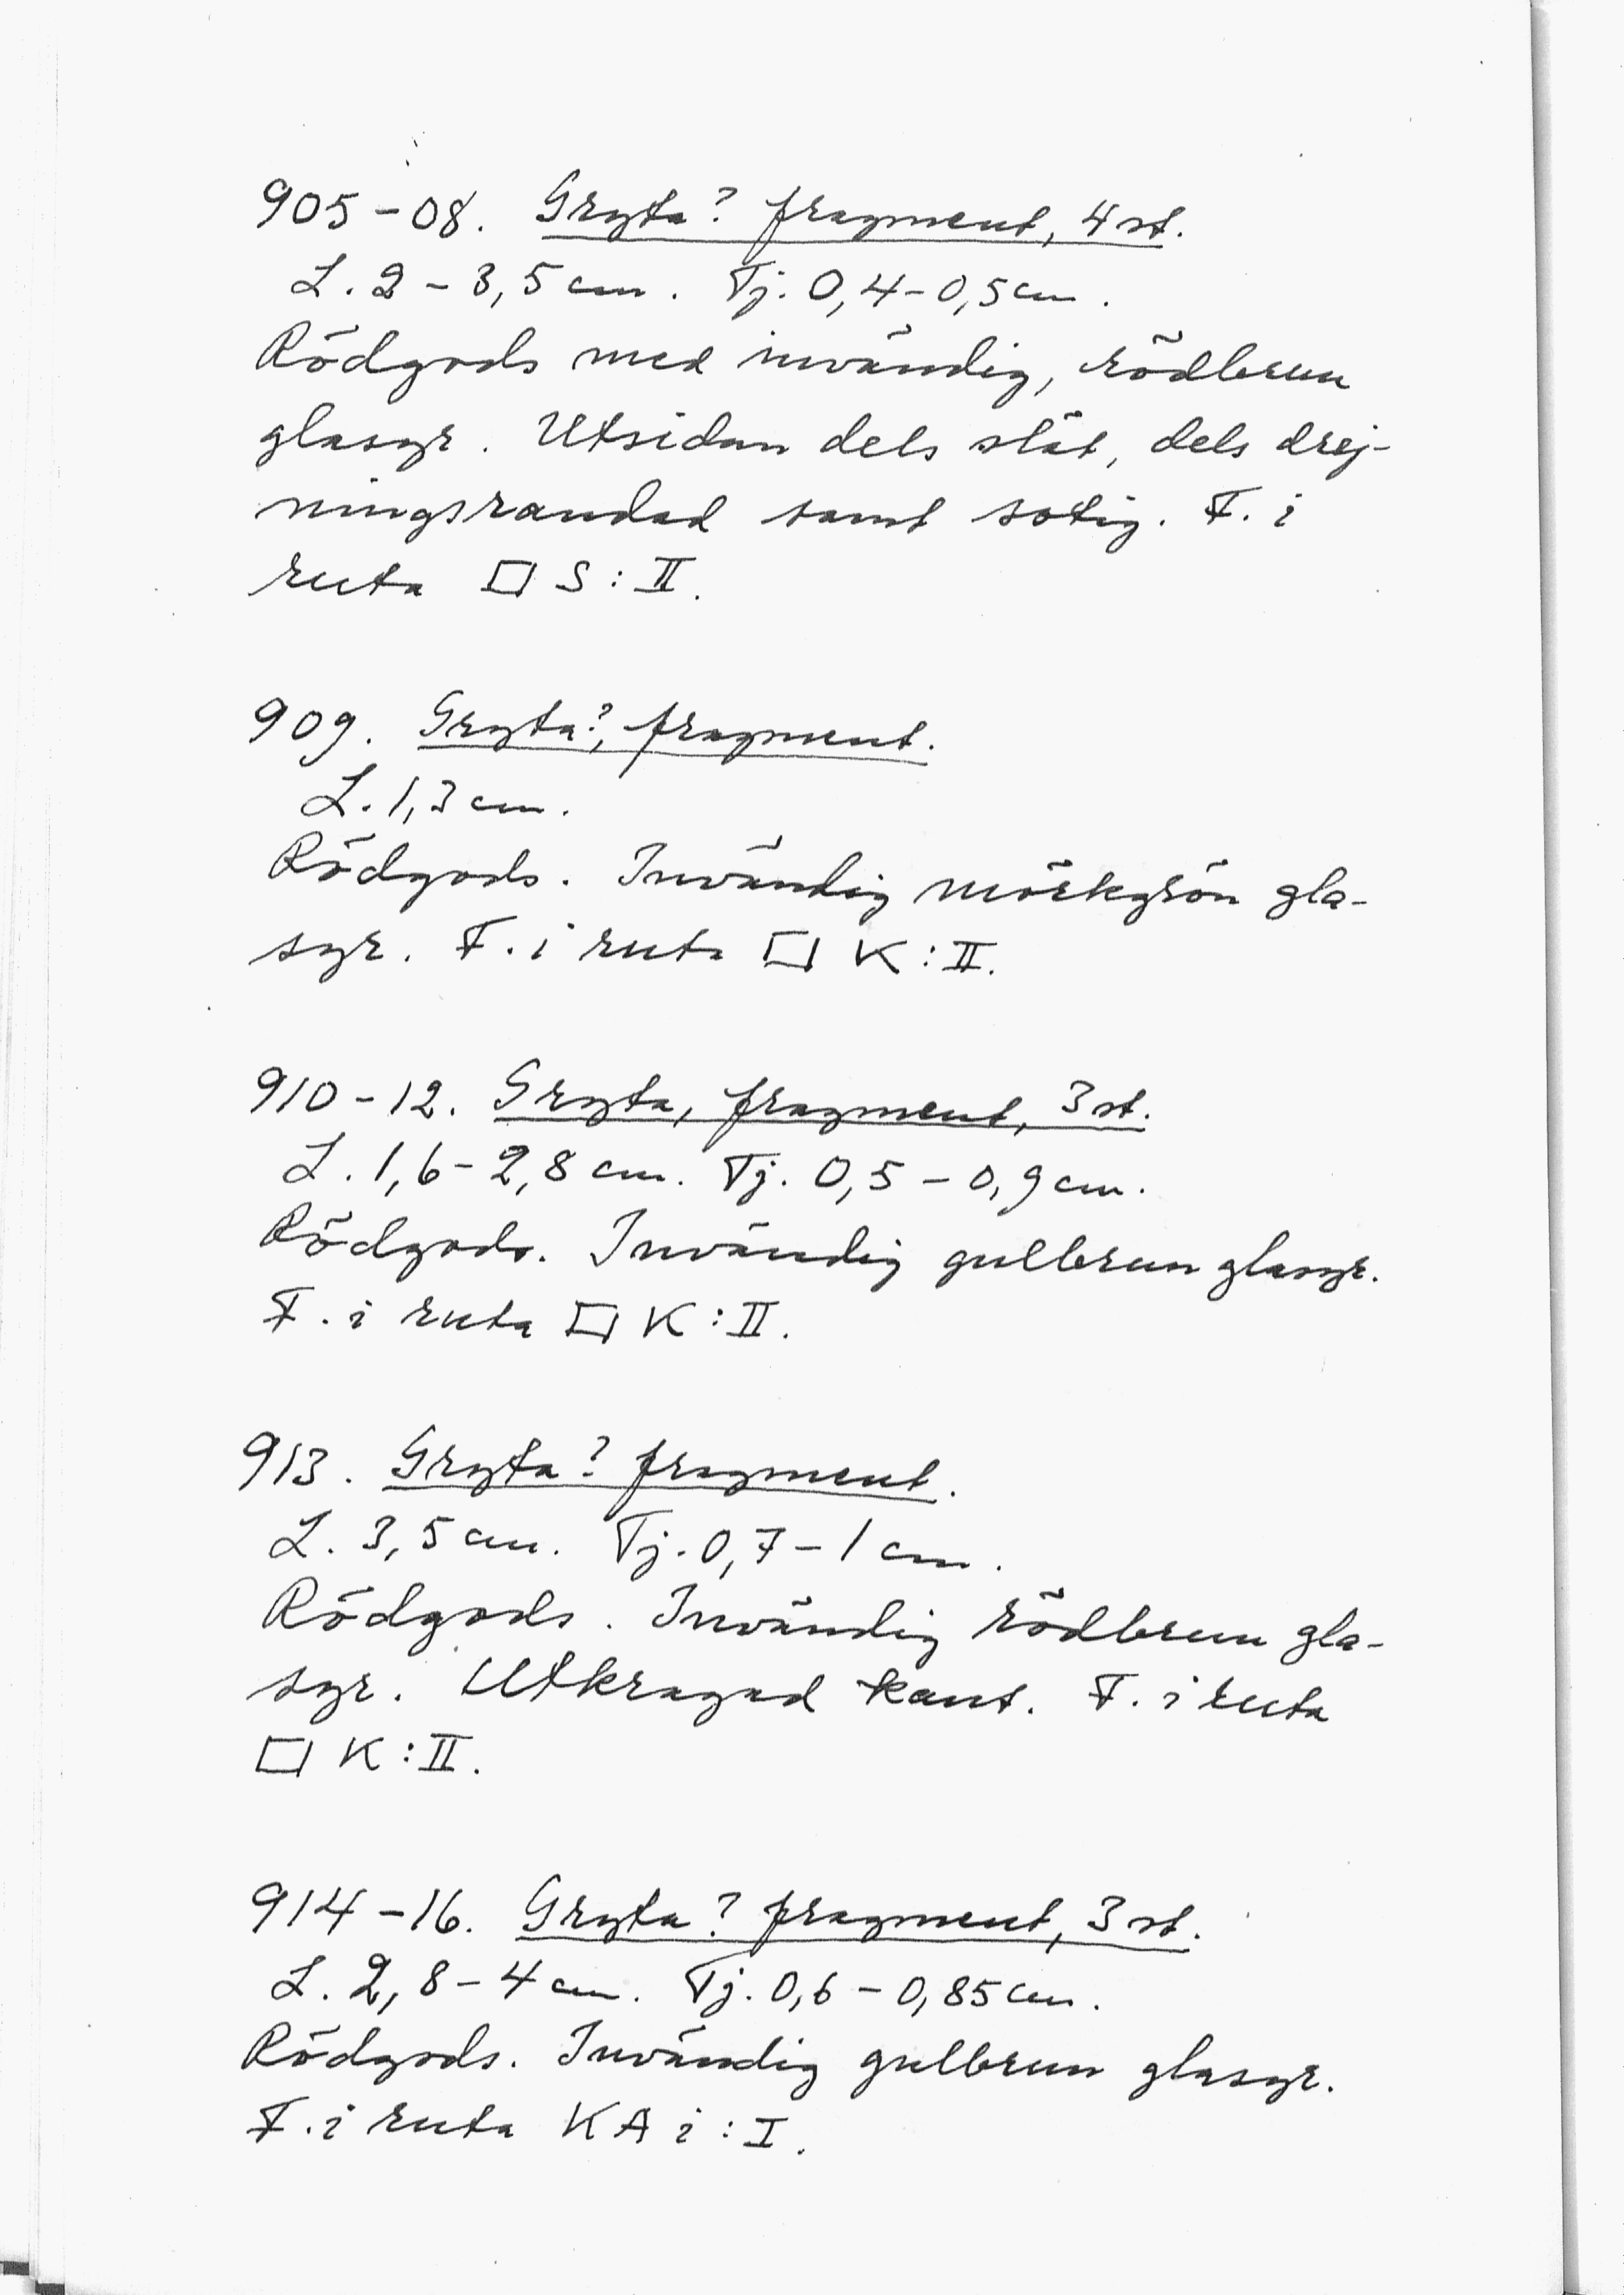 905-08. Gryta? fragment, 4 st.
L. 2-3,5 cm. Tj. 0,4-0,5 cm.
Rödgods med invändig, rödbrun
glasyr. Utsidan dels slät, dels drej-
ningsrandad samt sotig. F. i
ruta □ S:II.
909. Gryta?, fragment.
L. 1,3 cm.
Rödgods. Invändig mörkgrön gla-
syr. F. i ruta □ K:II.
910-12. Gryta, fragment, 3 st.
L. 1,6-2,8 cm. Tj. 0,5-0,9 cm.
Rödgods. Invändig gulbrun glasyr.
F. i ruta □ K:II.
913. Gryta? fragment.
L. 3,5 cm. Tj. 0,7-1 cm.
Rödgods. Invändig rödbrun gla-
syr. Utkragad kant. F. i ruta
□ K:II.
914-16. Gryta? fragment, 3 st.
L. 2,8-4 cm. Tj. 0,6-0,85 cm.
Rödgods. Invändig gulbrun glasyr.
F. i ruta KA i:I.